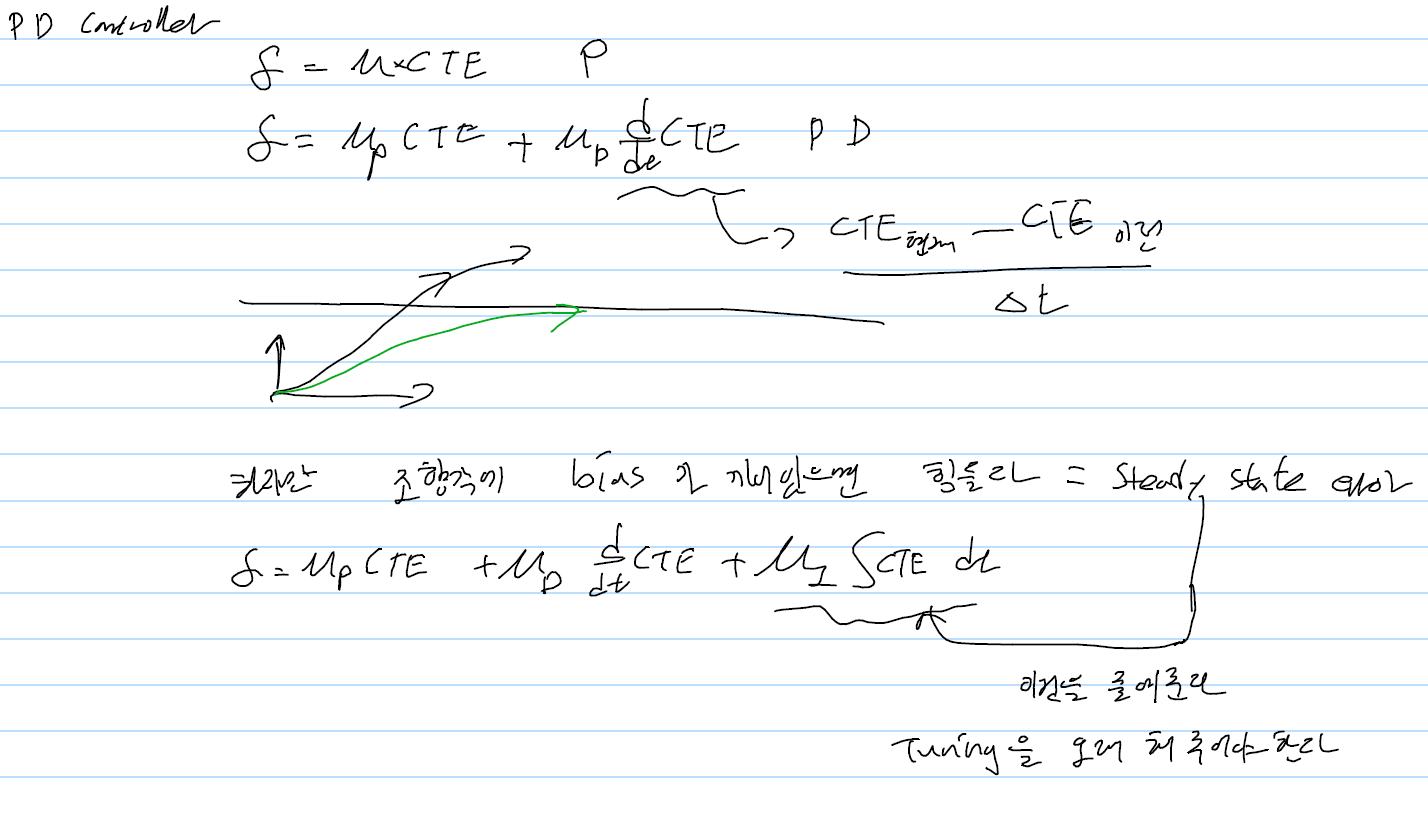 PD Controller
δ = μ×CTE P
δ = μp CTE + μD d/dt CTE PD
CTE현재 − CTE이전
Δt
하지만 조향각에 bias가 껴있으면 힘들다 = Steady state error
δ = μP CTE + μD d/dt CTE + μI ∫CTE dt
이것을 줄여준다
Tuning을 오래 해주어야한다